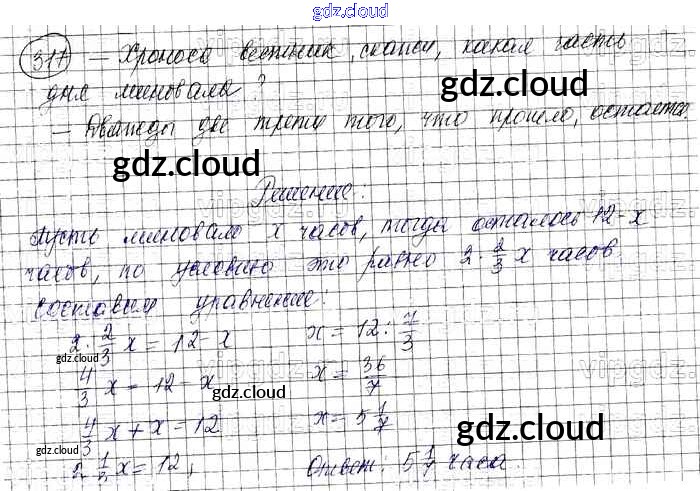 gdz.cloud
317 – Хроноса вестник, скажи, какая часть
gdz.cloud
дня миновала?
– Дважды две трети того, что прошло, остаётся.
gdz.cloud
Решение:
Пусть миновало x часов, тогда осталось 12-x
часов, по условию это равно 2·2/3 x часов.
Составим уравнение:
2·2/3 x = 12-x x = 12 : 7/3
gdz.cloud
4/3 x = 12-x x = 36/7
gdz.cloud
4/3 x + x = 12 x = 5 1/7
gdz.cloud
gdz.cloud
2 1/3 x = 12, Ответ: 5 1/7 часа.